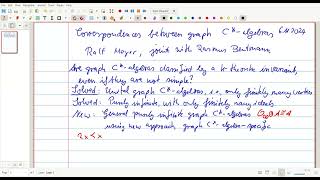 Correspondences between graph C*-algebras 6.11.2024
Ralf Meyer, joint with Rasmus Bentmann
Are graph C*-algebras classified by a K-theoretic invariant,
even if they are not simple?
Solved: Unital graph C*-algebras, i.e., only finitely many vertices
Solved: Purely infinite, with only finitely many ideals.
New: General purely infinite graph C*-algebras O∞⊗A≅A
using new approach, graph C*-algebra-specific
2x ≤ x